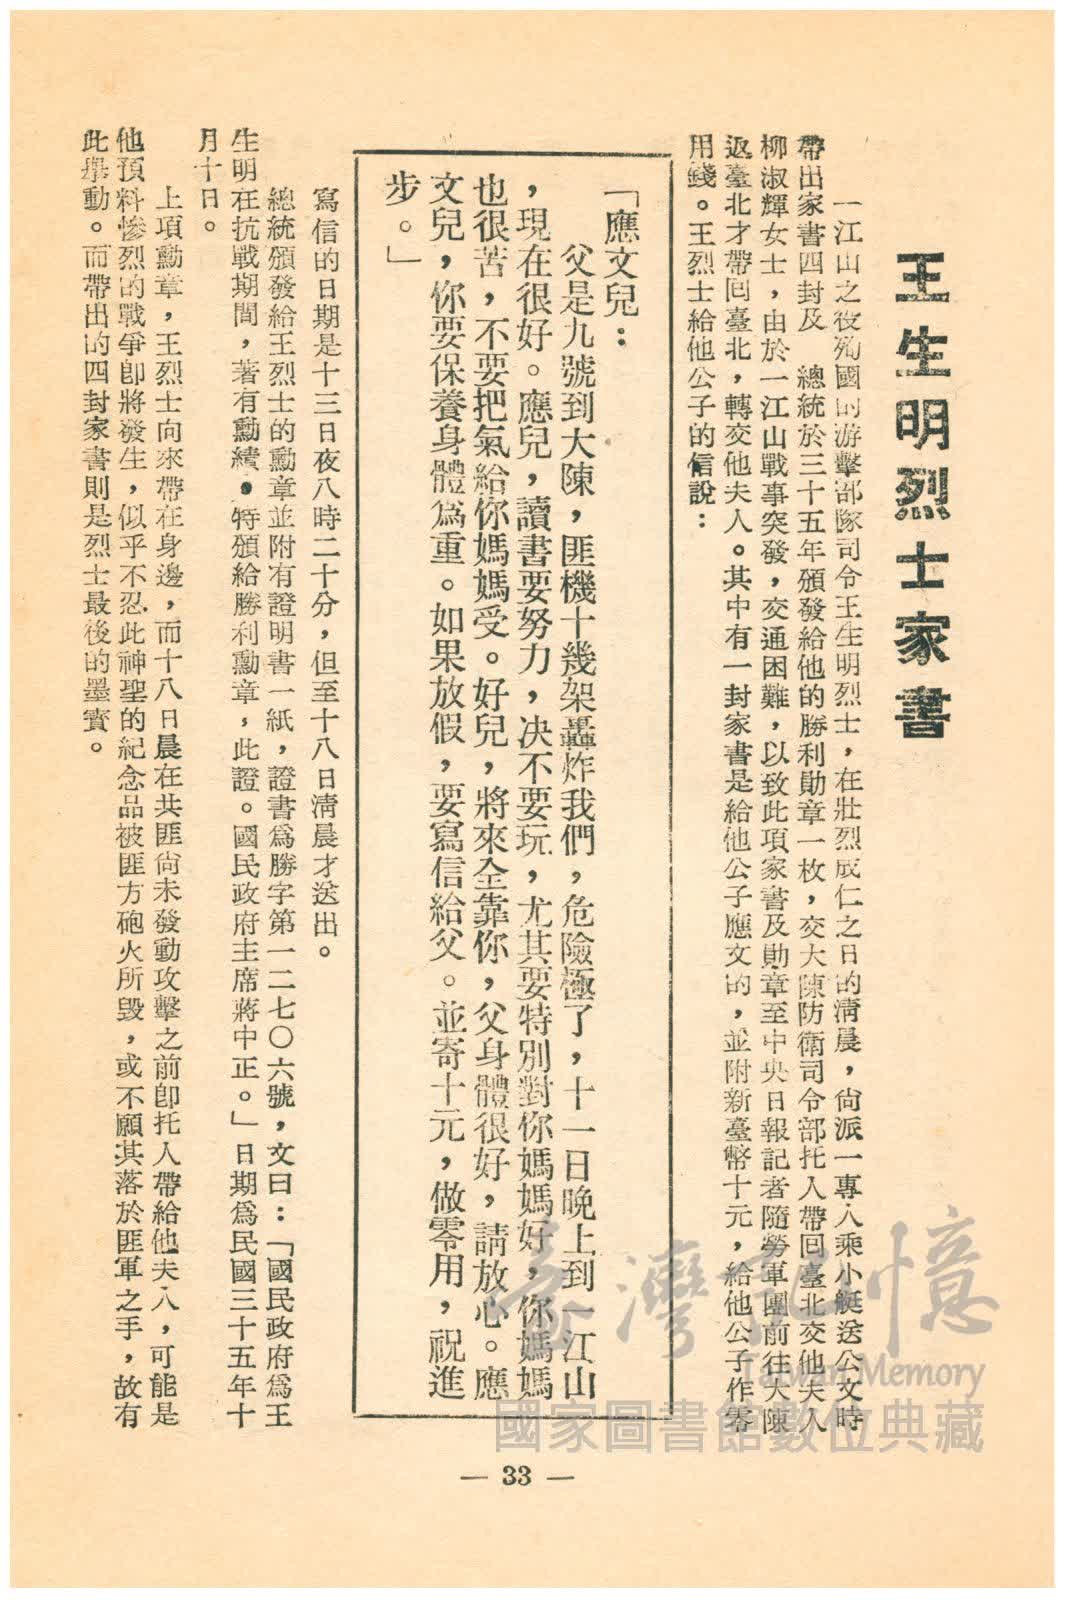 王生明烈士家書
一江山之役殉國的游擊部隊司令王生明烈士，在壯烈成仁之日的清晨，尙派一專人乘小艇送公文時
帶出家書四封及　總統於三十五年頒發給他的勝利勛章一枚，交大陳防衛司令部托人帶回臺北交他夫人
柳淑輝女士，由於一江山戰事突發，交通困難，以致此項家書及勛章至中央日報記者隨勞軍團前往大陳
返臺北才帶回臺北，轉交他夫人。其中有一封家書是給他公子應文的，並附新臺幣十元，給他公子作零
用錢。王烈士給他公子的信說：
「應文兒：
父是九號到大陳，匪機十幾架轟炸我們，危險極了，十一日晚上到一江山
，現在很好。應兒，讀書要努力，決不要玩，尤其要特別對你媽媽好，你媽媽
也很苦，不要把氣給你媽媽受。好兒，將來全靠你，父身體很好，請放心。應
文兒，你要保養身體爲重。如果放假，要寫信給父。並寄十元，做零用，祝進
步。」
寫信的日期是十三日夜八時二十分，但至十八日清晨才送出。
總統頒發給王烈士的勳章並附有證明書一紙，證書爲勝字第一二七〇六號，文曰：「國民政府爲王
生明在抗戰期間，著有勳績，特頒給勝利勳章，此證。國民政府主席蔣中正。」日期爲民國三十五年十
月十日。
上項勳章，王烈士向來帶在身邊，而十八日晨在共匪尙未發動攻擊之前卽托人帶給他夫人，可能是
他預料慘烈的戰爭卽將發生，似乎不忍此神聖的紀念品被匪方砲火所毀，或不願其落於匪軍之手，故有
此舉動。而帶出的四封家書則是烈士最後的墨寶。
— 33 —
臺灣記憶
Taiwan Memory
國家圖書館數位典藏